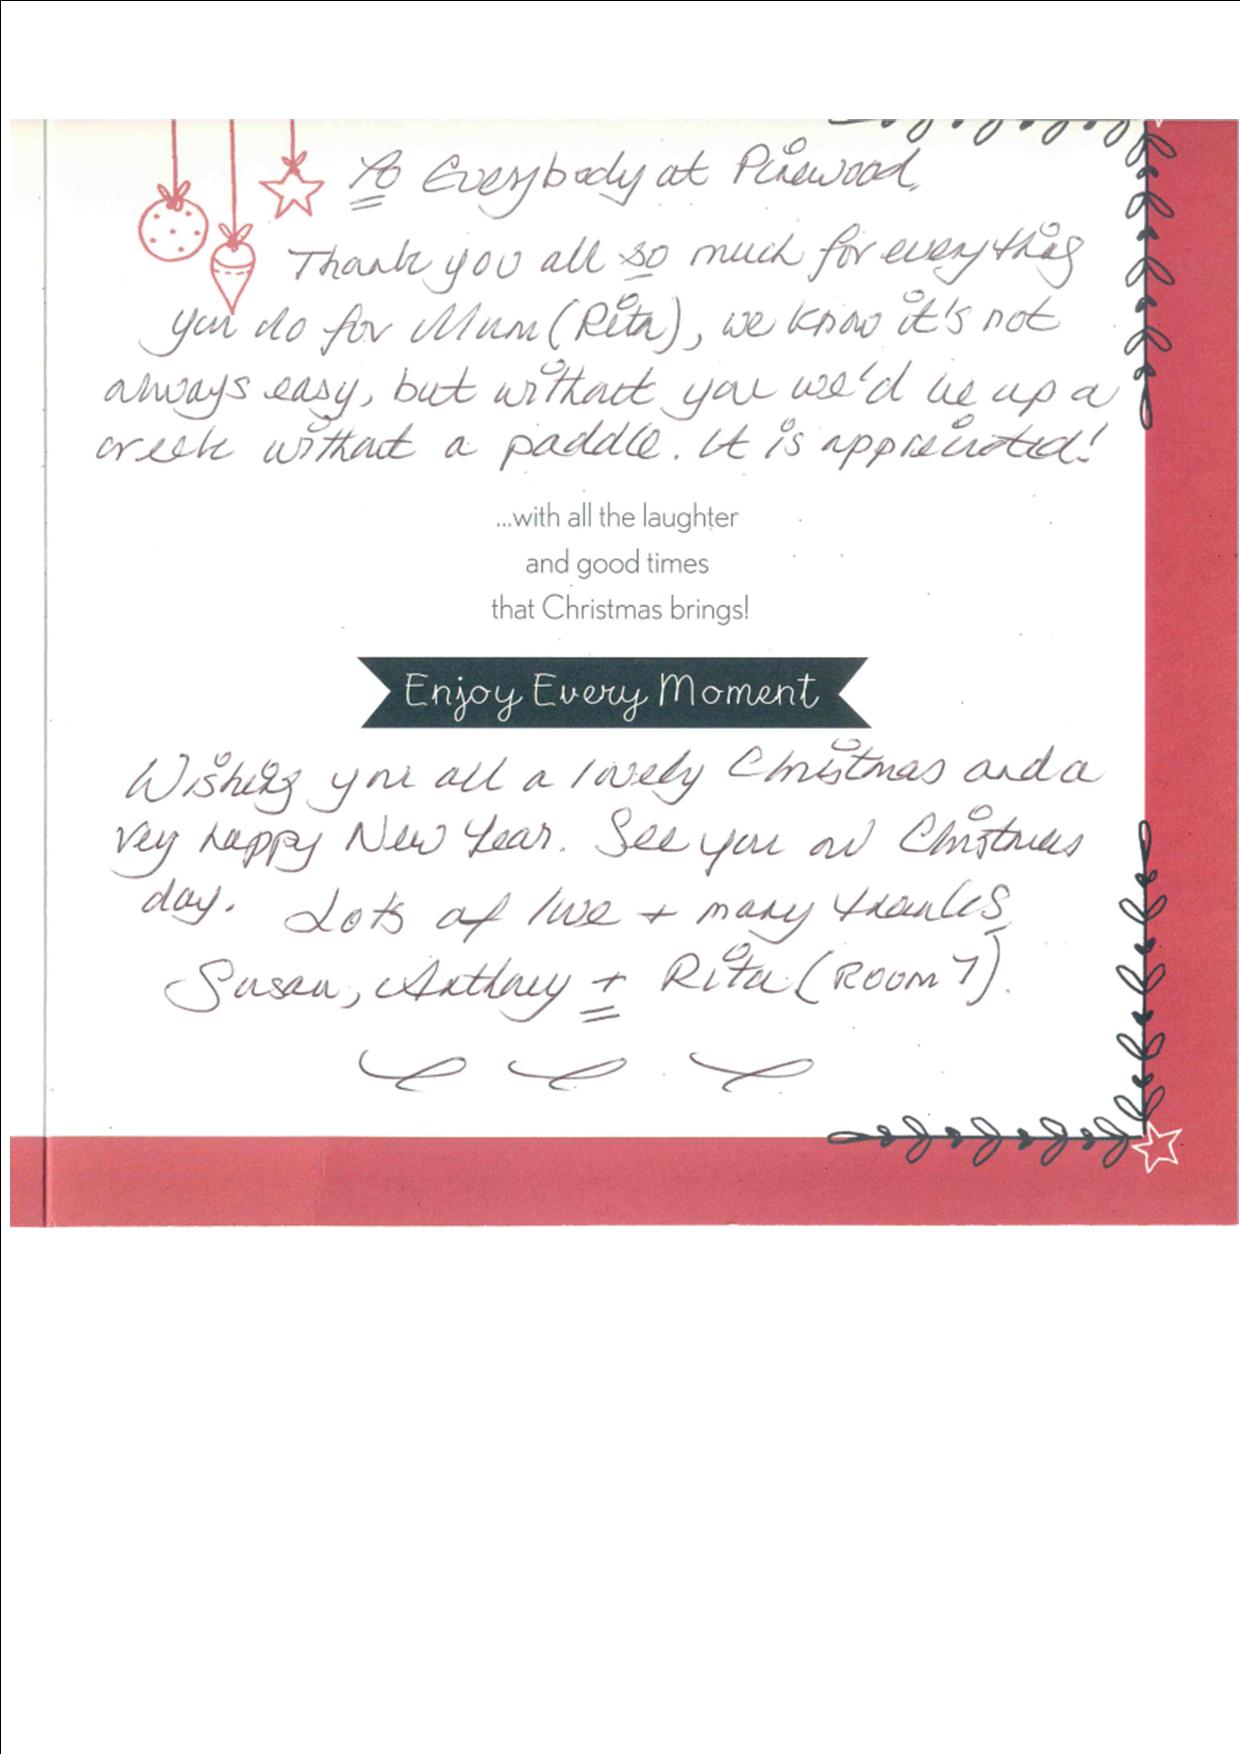 To Everybody at Pinewood,
Thank you all so much for everything
you do for Mum (Rita), we know it's not
always easy, but without you we'd be up a
creek without a paddle. It is appreciated!
...with all the laughter
and good times
that Christmas brings!
Enjoy Every Moment
Wishing you all a lovely Christmas and a
very happy New Year. See you on Christmas
day. Lots of love + many thanks
Susan, Anthony + Rita (ROOM 7).